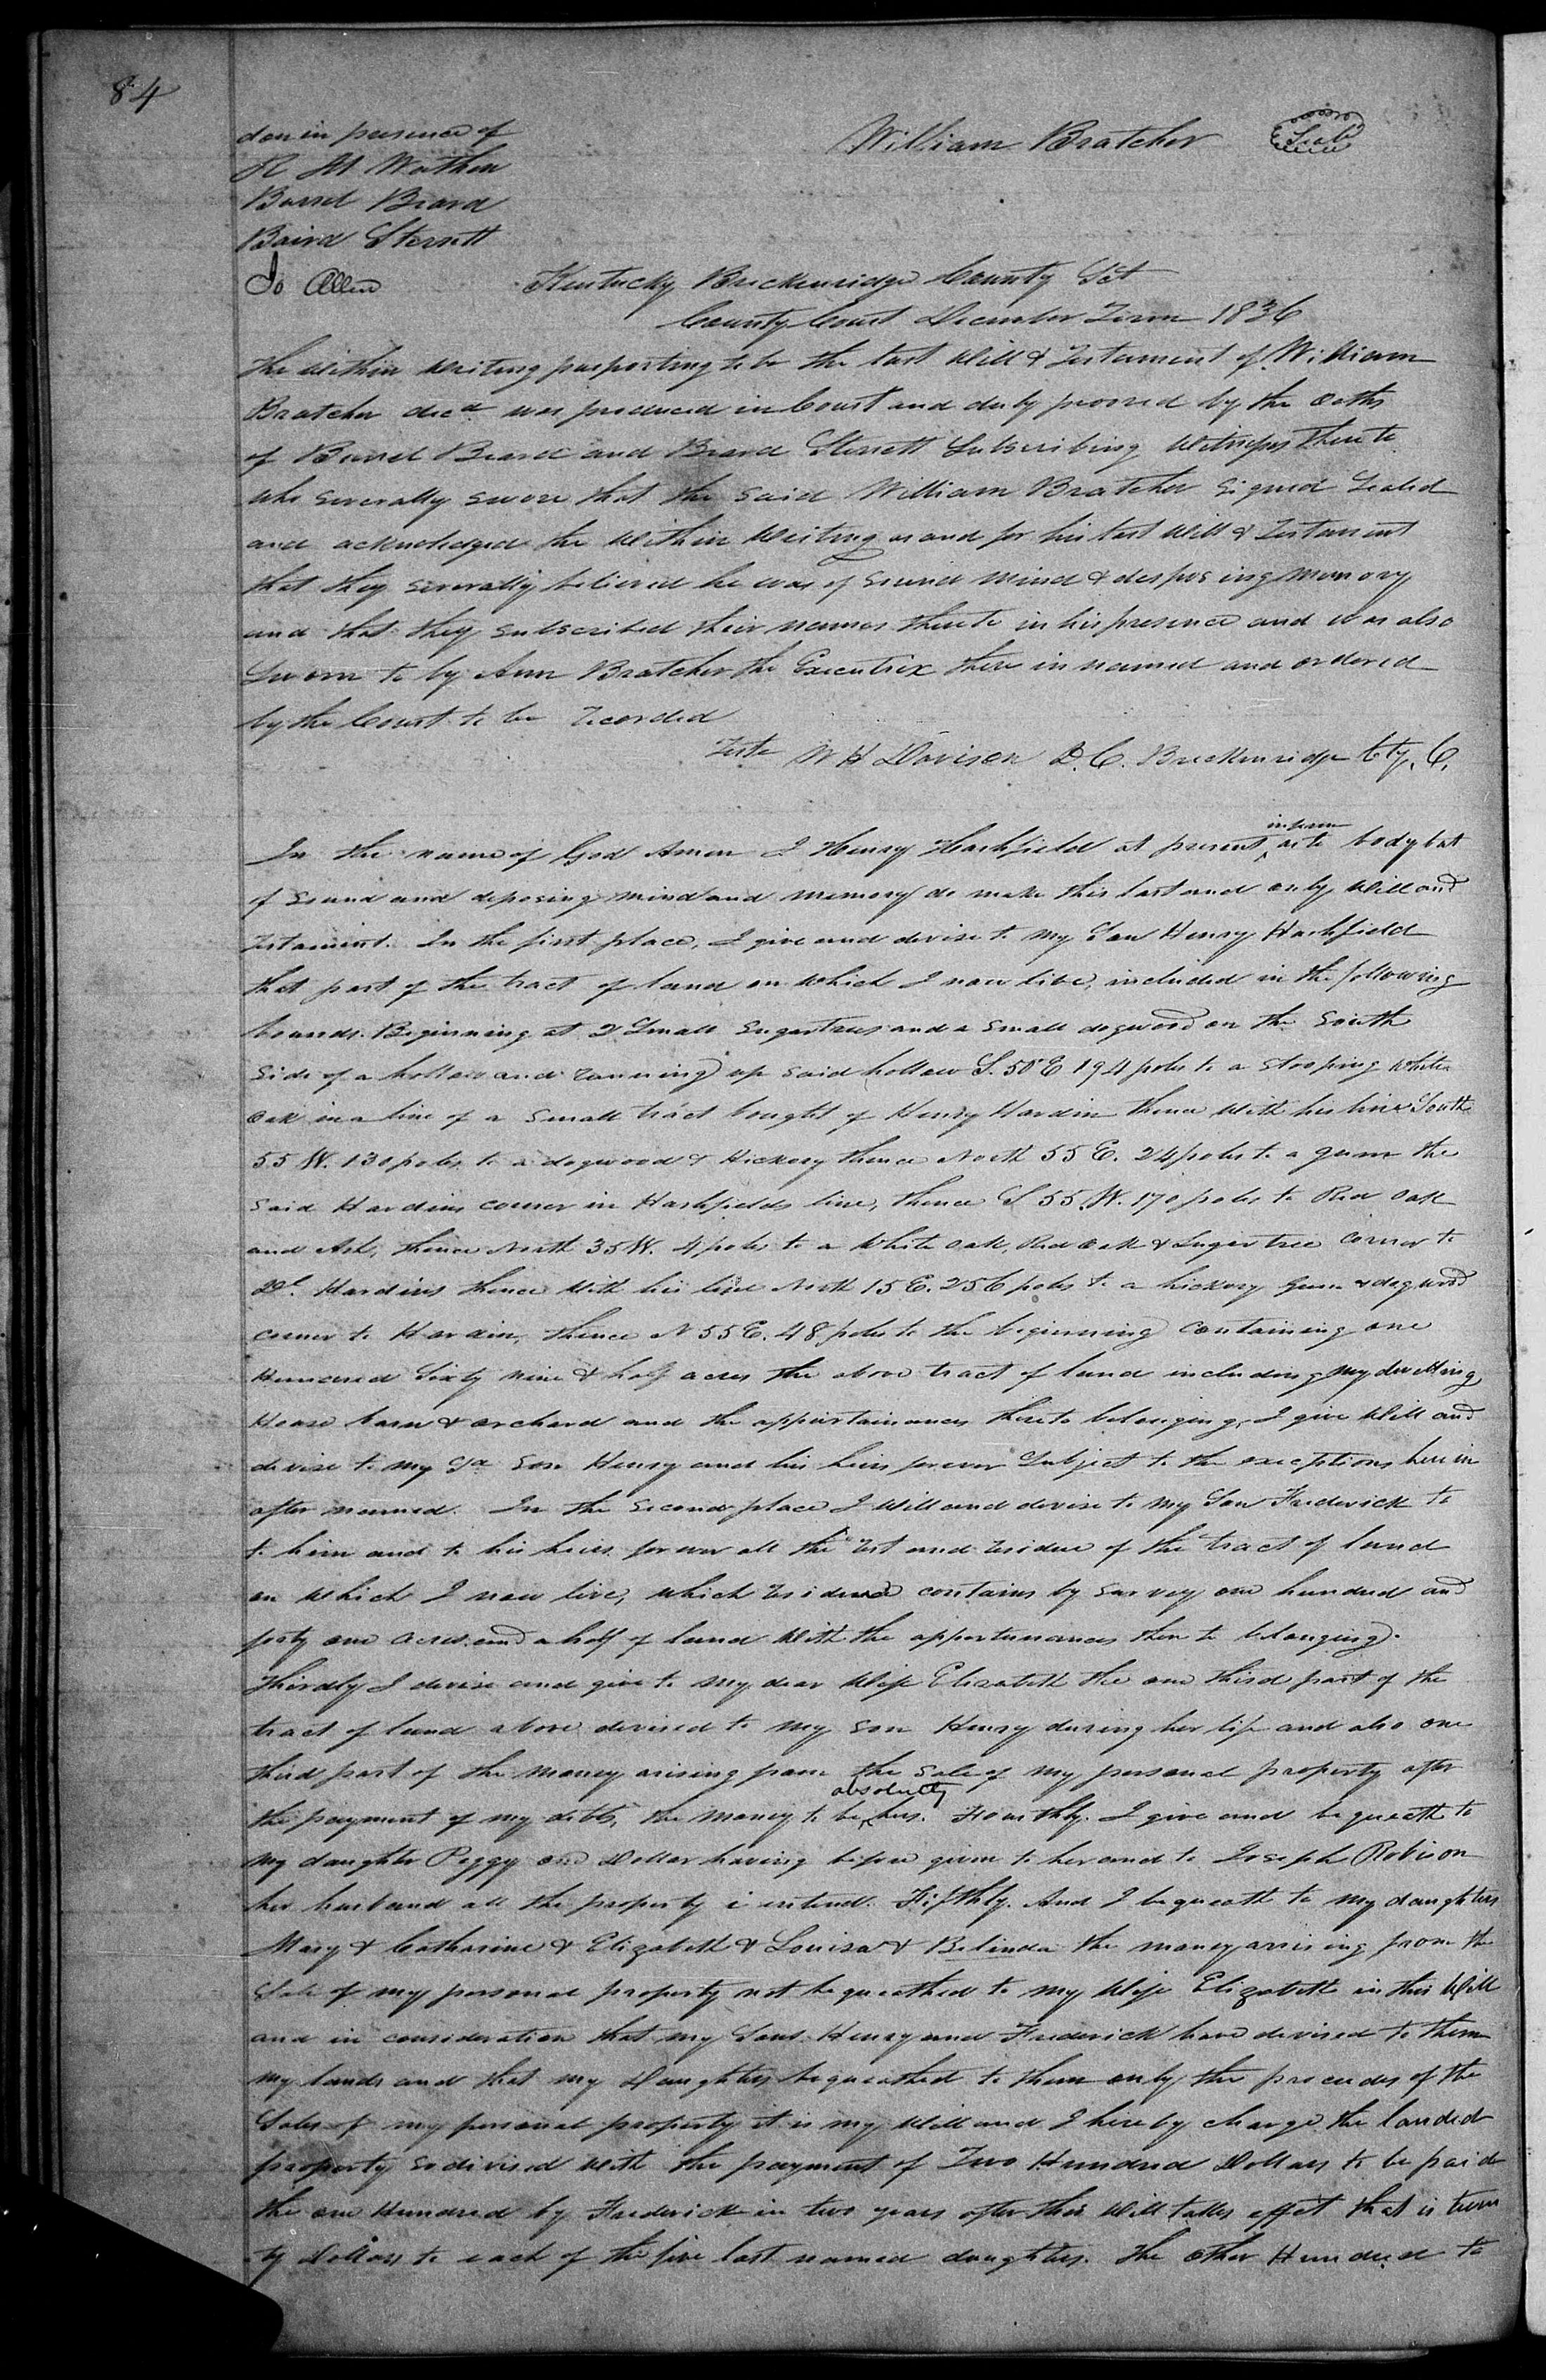 84
don in presence of
William Bratcher Seal
R M Wathen
Burrel Beard
Baird Sterrett
Jo Allen
Kentucky Breckenridge County Sct
County Court December Term 1836
The within writing purporting to be the last Will & Testament of William
Bratcher decd was produced in Court and duly prooved by the oaths
of Burrel Beard and Beard Sterrett Subscribing Witnesses thereto
who severally swore that the said William Bratcher signed Sealed
and acknoledged the within writing as and for his last Will & Testament
that they severally believed he was of sound mind & desposing memory
and that they subscribed their names thereto in his presence and was also
Sworn to by Ann Bratcher the Executrix there in named and ordered
by the Court to be recorded
Teste W H Davison D. C. Breckenridge Cty. C.
In the name of God Amen I Henry Hashfield at present infirm as to body but
of sound and disposing mind and memory do make this last and only Will and
Testament. In the first place, I give and devise to my Son Henry Hashfield
that part of the tract of land on which I now live, included in the following
bounds. Beginning at 2 Small Sugartrees and a small dogwood on the South
side of a hollow and running up said hollow S. 50 E 194 poles to a stooping white
oak in a line of a small tract bought of Henry Hardin thence with his line South
55 W. 130 poles to a dogwood & Hickory thence North 55 E. 24 poles to a gum the
said Hardins corner in Hashfields line, thence S 55. W. 170 poles to Red oak
and Ash, thence North 35 W. 4 poles to a White oak, Red oak & Sugar tree corner to
Dl. Hardins thence with his line North 15 E. 256 poles to a hickory gum & dogwood
corner to Hardin, thence N 55 E. 48 poles to the beginning containing one
Hundred Sixty nine & half acres the above tract of land including my dwelling
House barn & orchard and the appurtainances thereto belonging, I give will and
devise to my sd son Henry and his heirs forever Subject to the exceptions herein
after named. In the second place I will and devise to my Son Frederick to
to him and to his heirs forever all the rest and residue of the tract of land
on which I now live, which residue contains by survey one hundred and
forty one acres and a half of land with the appurtenances thereto belonging.
Thirdly I devise and give to my dear Wife Elizabeth the one third part of the
tract of land above devised to my son Henry during her life and also one
third part of the money arising from the sale of my personal property after
the payment of my debts, the money to be absolutely hers. Fourthly. I give and bequeath to
my daughter Peggy one Dollar having before given to her and to Joseph Robison
her husband all the property i intend. Fifthly. And I bequeath to my daughters
Mary & Catharine & Elizabeth & Louisa & Belinda the money arising from the
Sale of my personal property not bequeathed to my Wife Elizabeth in this Will
and in consideration that my Sons Henry and Frederick have devised to them
my lands and that my Daughters bequeathed to them only the proceeds of the
Sales of my personal property it is my Will and I hereby charge the landed
property so divised with the payment of Two Hundred Dollars to be paid
the one Hundred by Frederick in two years after this Will takes effect that is twen
ty Dollars to each of the five last named daughters. The other Hundred to